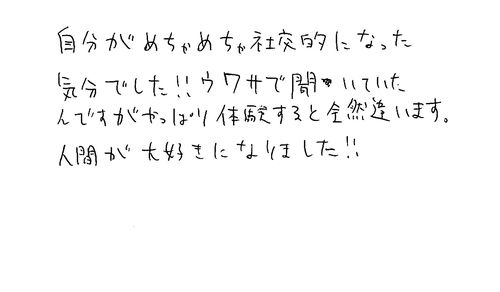 自分がめちゃめちゃ社交的になった
気分でした!!ウワサで聞いていた
んですがやっぱり体験すると全然違います。
人間が大好きになりました!!